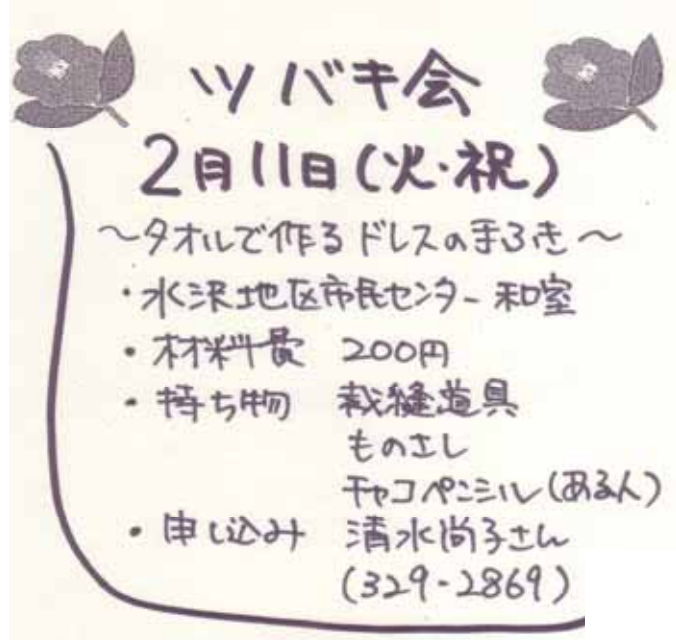 ツバキ会
2月11日(火・祝)
～タオルで作るドレスの手ふき～
・水沢地区市民センター 和室
・材料費 200円
・持ち物 裁縫道具
ものさし
チャコペンシル(ある人)
・申し込み 清水尚子さん
(329-2869)